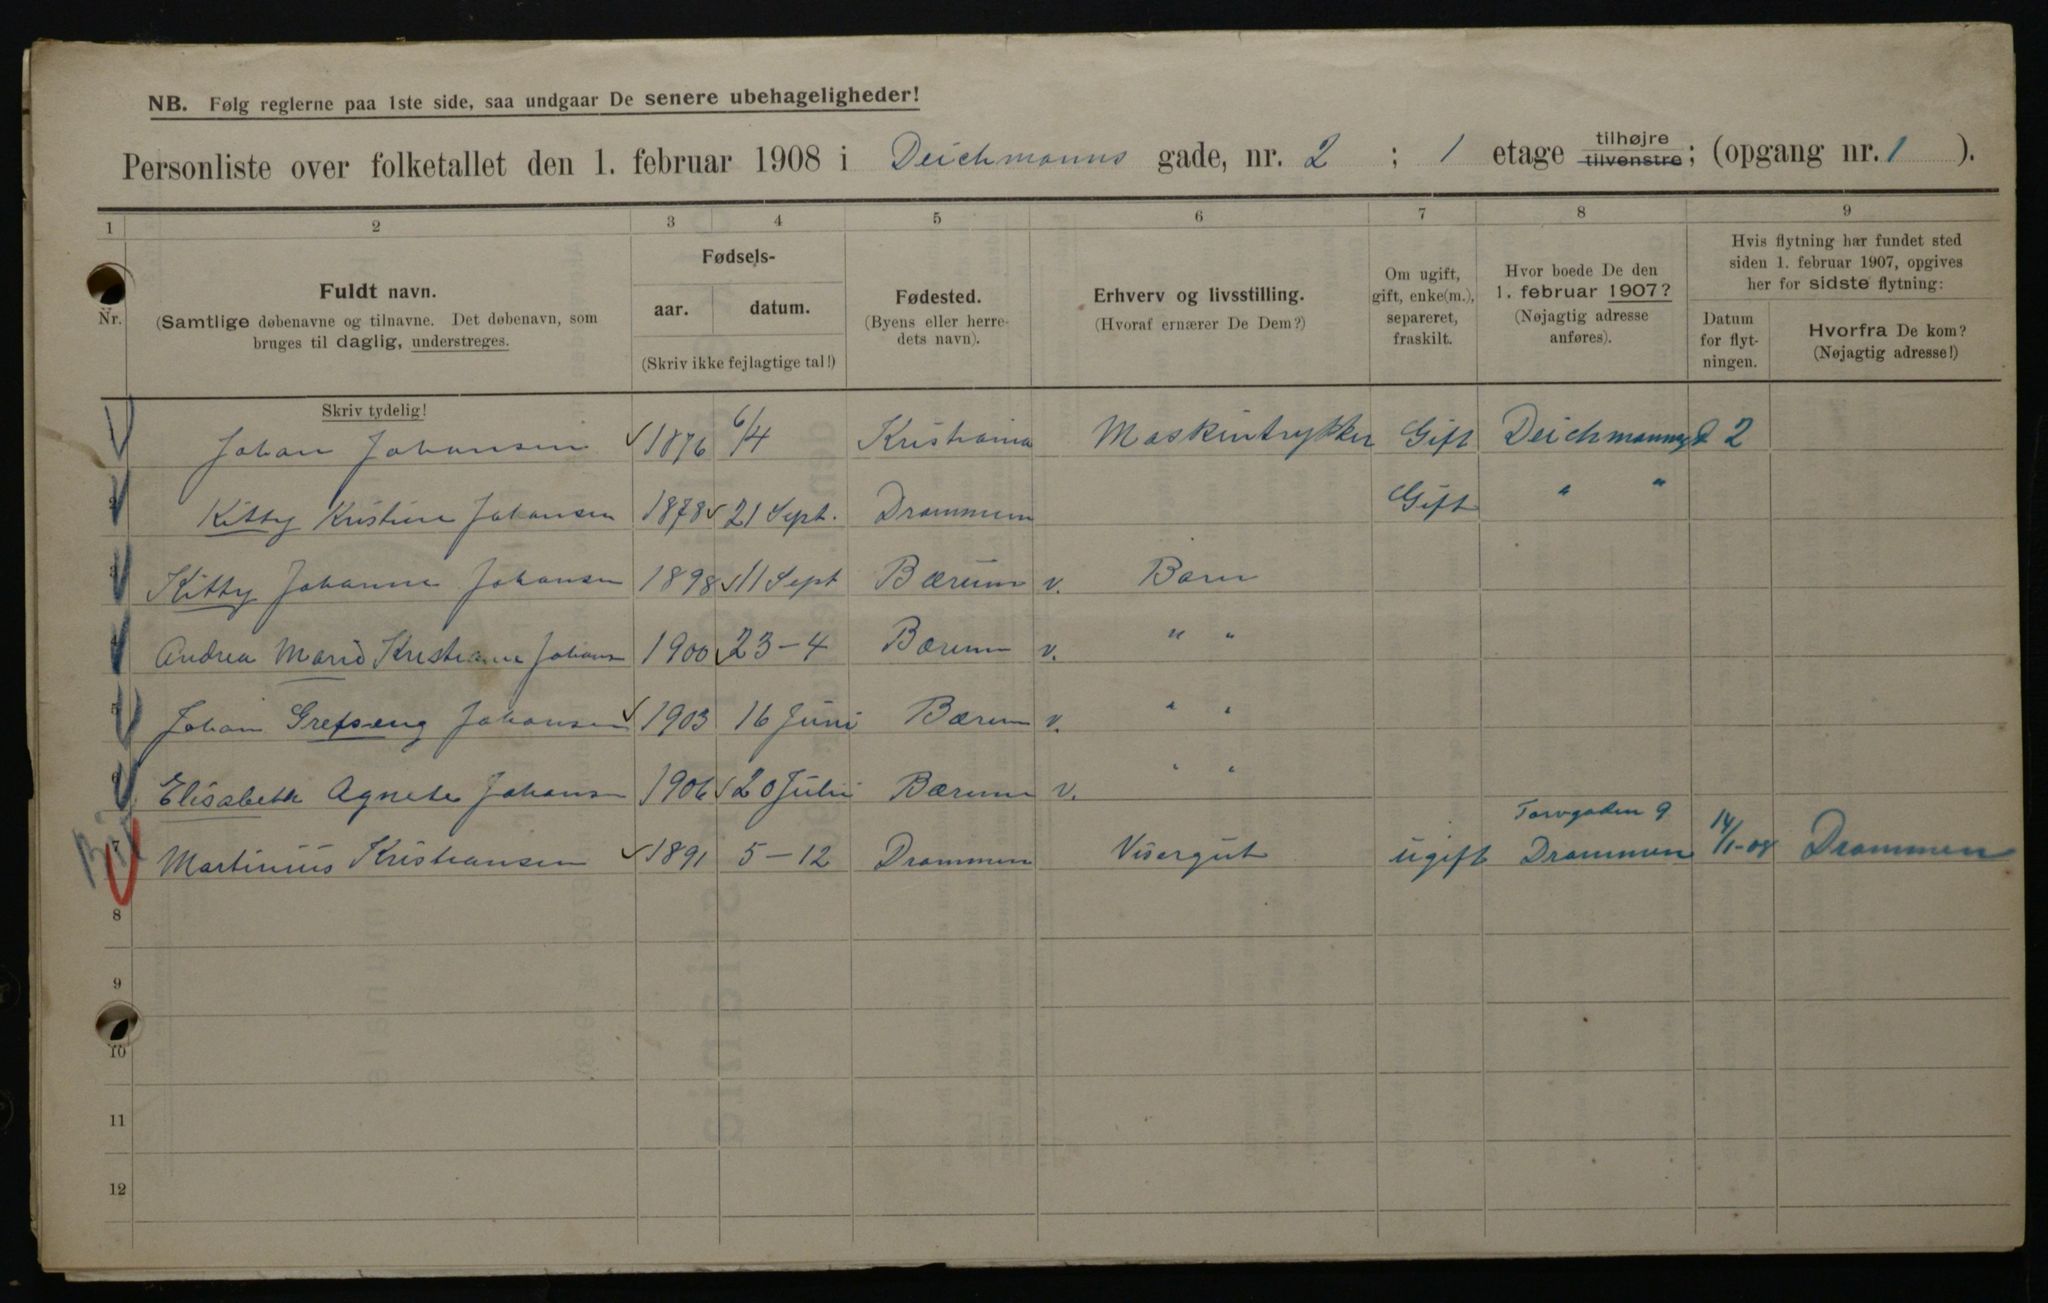 NB. Følg reglerne paa 1ste side, saa undgaar De senere ubehageligheder!
Personliste over folketallet den 1. februar 1908 i Deichmanns gade, nr. 2 ; 1 etage tilhøjre tilvenstre; (opgang nr. 1 ).
1 2 3 4 5 6 7 8 9
Nr.
Fuldt navn.
(Samtlige døbenavne og tilnavne. Det døbenavn, som
bruges til daglig, understreges.
Fødsels-
aar. datum.
(Skriv ikke fejlagtige tal!)
Fødested.
(Byens eller herre-
dets navn).
Erhverv og livsstilling.
(Hvoraf ernærer De Dem?)
Om ugift,
gift, enke(m.),
separeret,
fraskilt.
Hvor boede De den
1. februar 1907?
(Nøjagtig adresse
anføres).
Hvis flytning har fundet sted
siden 1. februar 1907, opgives
her for sidste flytning:
Datum
for flyt-
ningen.
Hvorfra De kom?
(Nøjagtig adresse!)
Skriv tydelig!
Johan Johansen 1876 6/4 Kristiania Maskintrykker Gift Deichmannsg 2
2 Kitty Kristine Johansen 1878 21 Sept. Drammen Gift " "
3 Kitty Johanne Johansen 1898 11 Sept Bærum v. Barn
4 Andrea Marie Kristiane Johans 1900 23-4 Bærum v. " "
5 Johan Grefseng Johansen 1903 16 Juni Bærum v. " "
6 Elisabeth Agnete Johans 1906 20 Juli Bærum v. " "
Torvgaden 9
7 Martinius Kristiansen 1891 5-12 Drammen Visergut ugift Drammen 14/1-08 Drammen
8
9
10
11
12